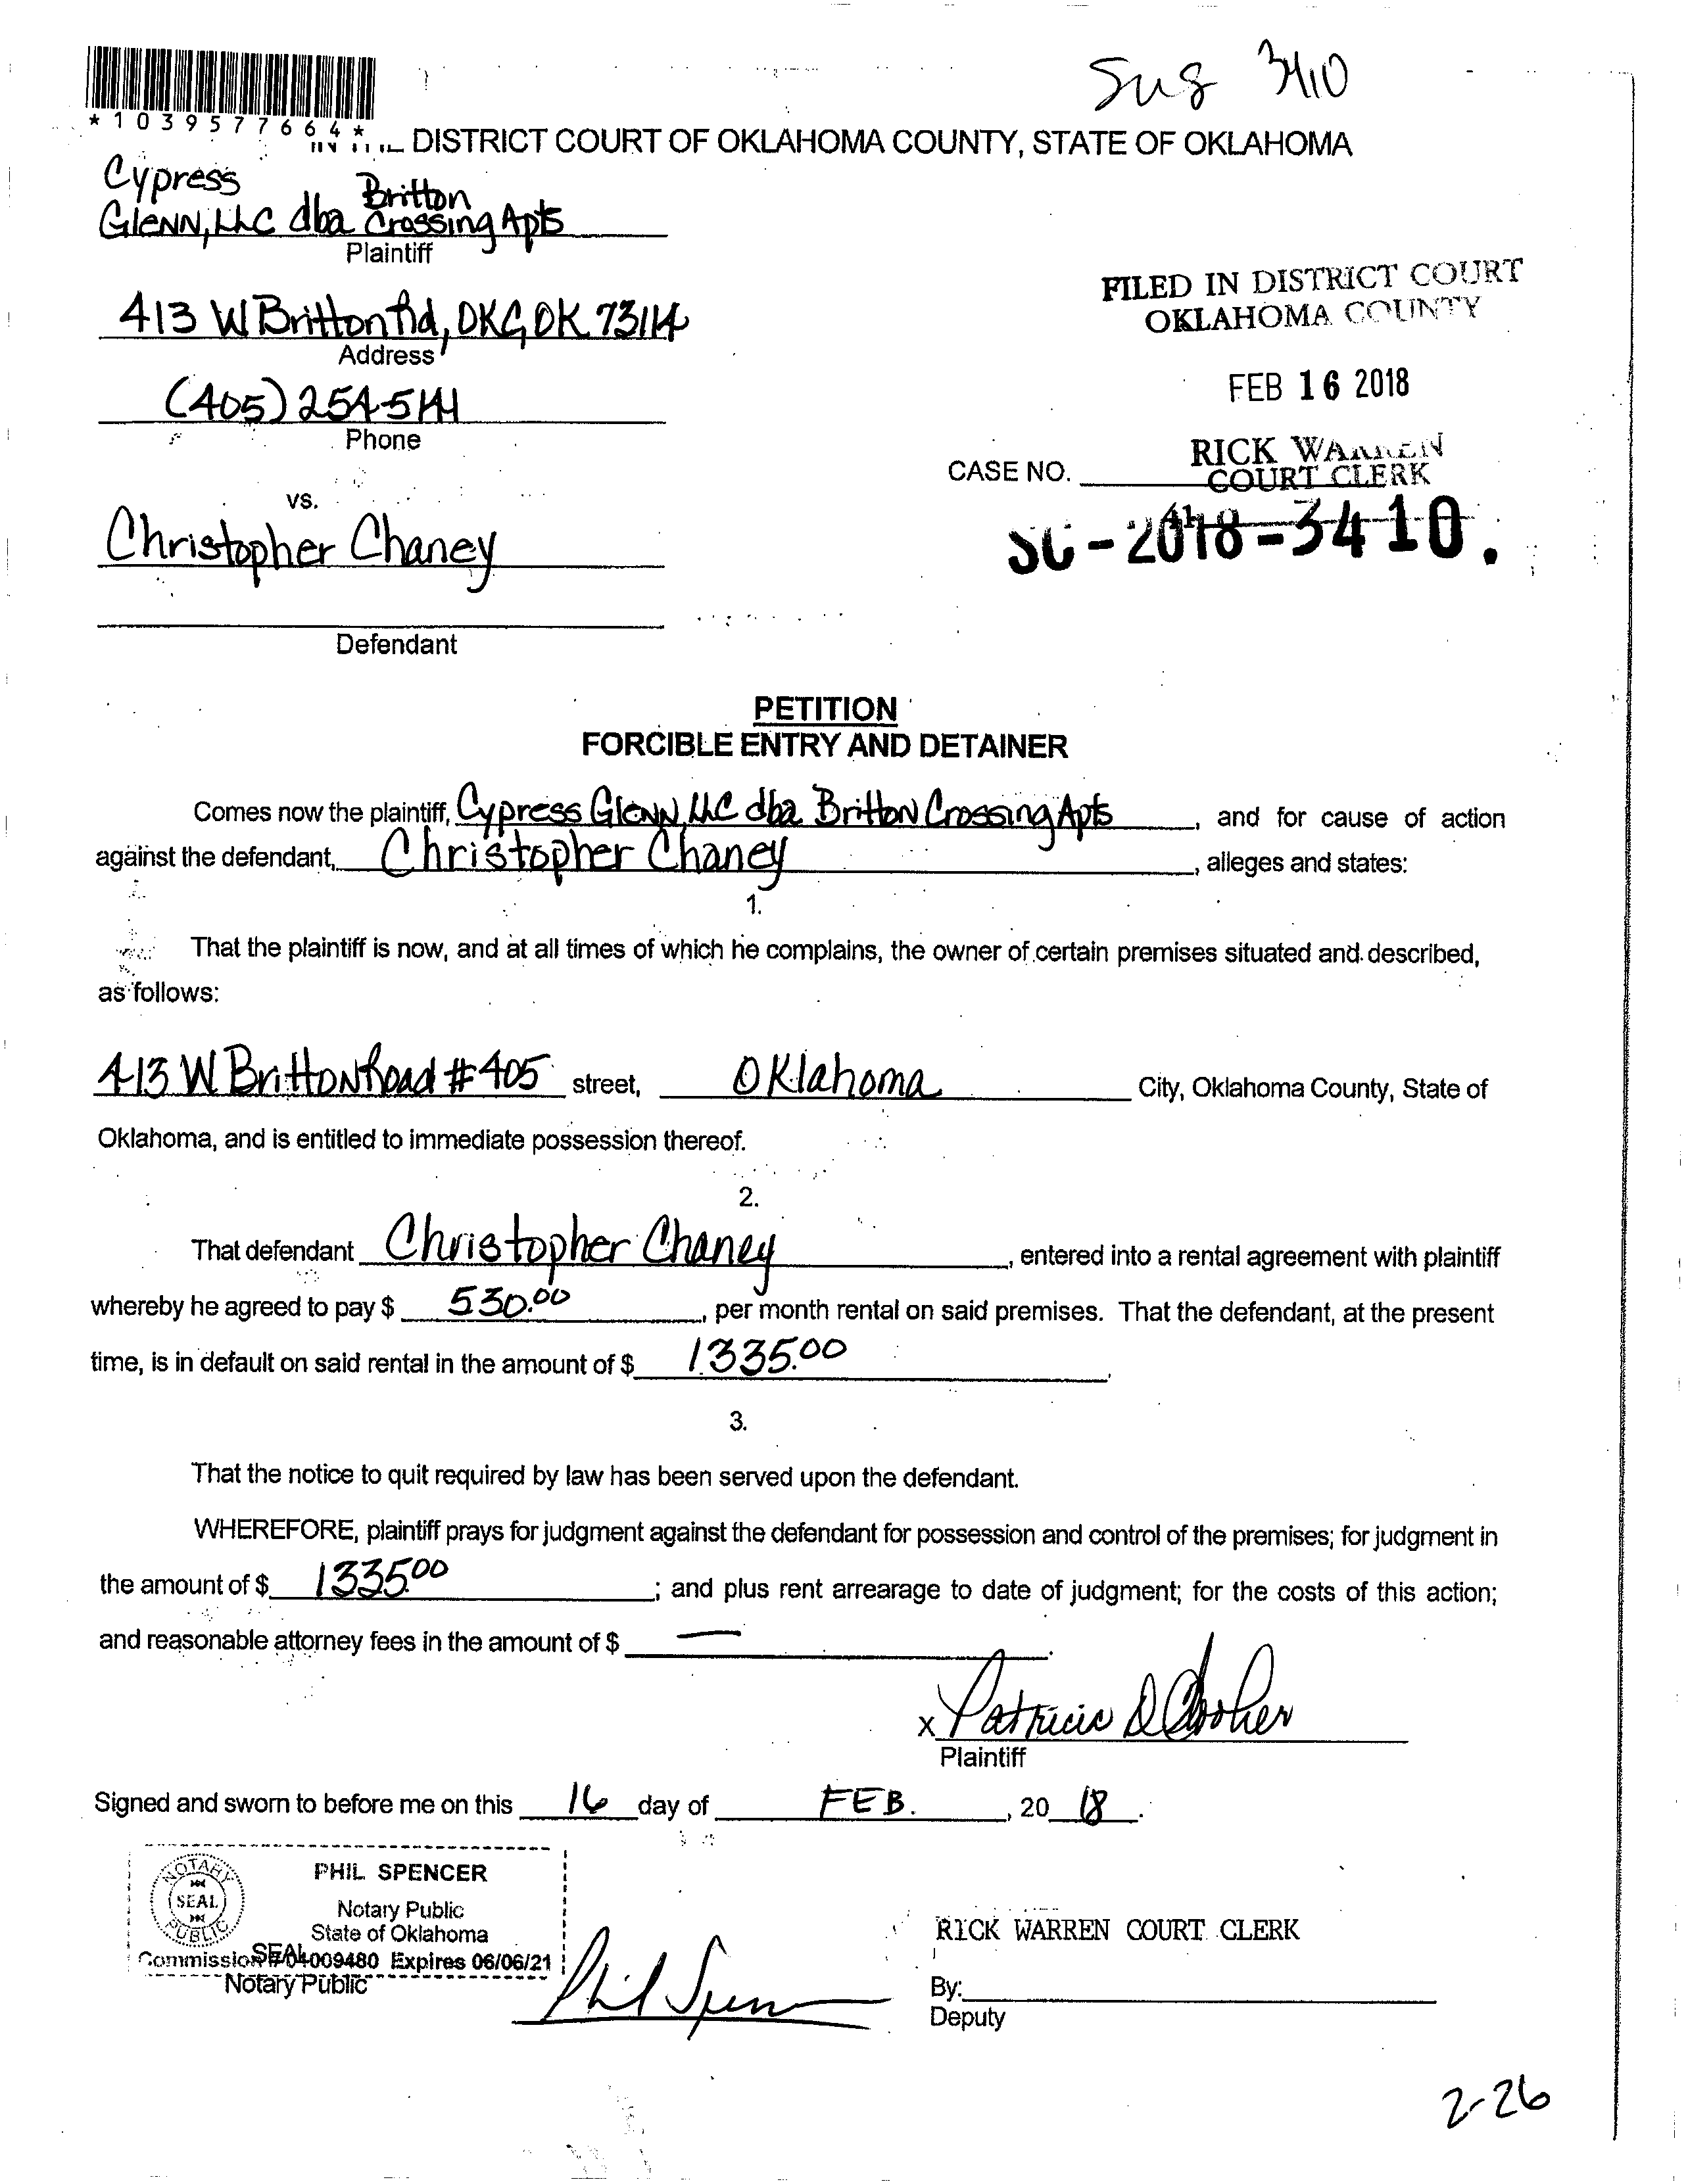 3410
*1039577664*
DISTRICT COURT OF OKLAHOMA COUNTY, STATE OF OKLAHOMA
Cypress
Glenn, LLC dba Britton Crossing Apts
Plaintiff
413 W Britton Rd, OKC, OK 73114
Address
FILED IN DISTRICT COURT
OKLAHOMA COUNTY
FEB 16 2018
(405) 254-5141
Phone
RICK WARREN
COURT CLERK
CASE NO.
SC-2018-3410.
vs.
Christopher Chaney
Defendant
PETITION
FORCIBLE ENTRY AND DETAINER
Comes now the plaintiff, Cypress Glenn, LLC dba Britton Crossing Apts, and for cause of action
against the defendant, Christopher Chaney, alleges and states:
1.
That the plaintiff is now, and at all times of which he complains, the owner of certain premises situated and described,
as follows:
413 W Britton Road #405 street, Oklahoma City, Oklahoma County, State of
Oklahoma, and is entitled to immediate possession thereof.
2.
That defendant Christopher Chaney, entered into a rental agreement with plaintiff
whereby he agreed to pay $ 530.00, per month rental on said premises. That the defendant, at the present
time, is in default on said rental in the amount of $ 1335.00.
3.
That the notice to quit required by law has been served upon the defendant.
WHEREFORE, plaintiff prays for judgment against the defendant for possession and control of the premises; for judgment in
the amount of $ 1335.00; and plus rent arrearage to date of judgment; for the costs of this action;
and reasonable attorney fees in the amount of $ —.
x Patricia D
Plaintiff
Signed and sworn to before me on this 16 day of FEB., 20 18.
NOTARY PUBLIC SEAL
PHIL SPENCER
Notary Public
State of Oklahoma
Commission #04009480 Expires 06/06/21
SEAL
Notary Public
Phil Spencer
RICK WARREN COURT CLERK
By:
Deputy
2-26